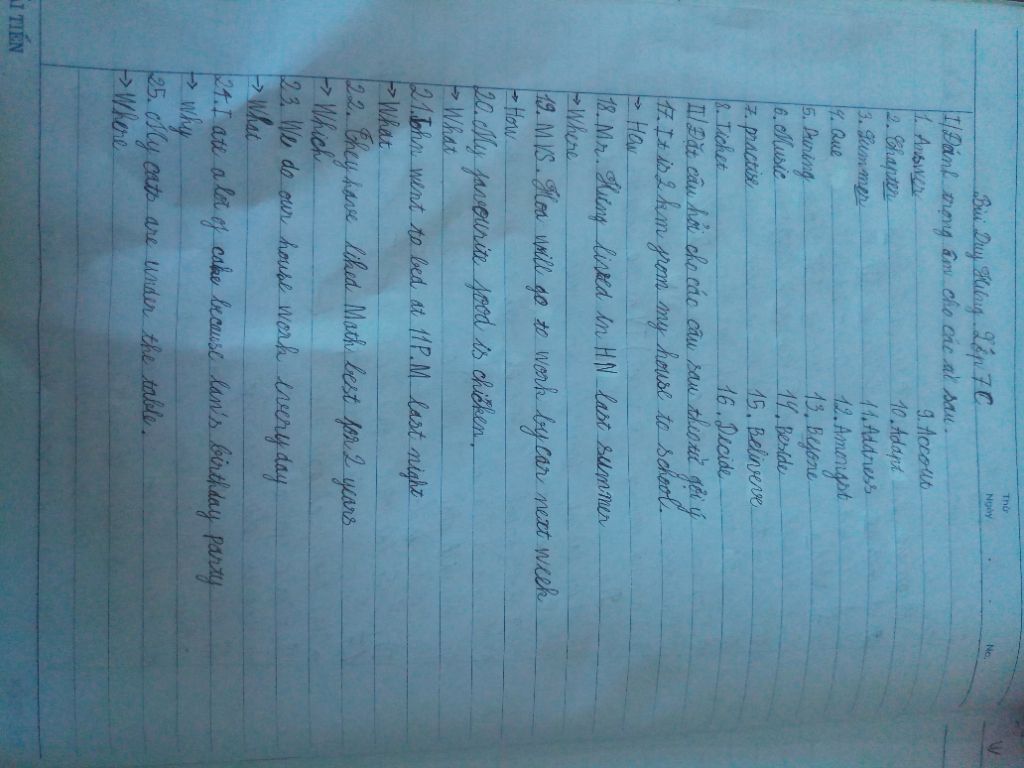 Thứ
Ngày . . No.
Bùi Duy Hưng Lớp 7C
I/ Đánh trọng âm cho các từ sau.
1. Answer 9. Across
2. Chapter 10. Adapt
3. Summer 11. Address
4. Cue 12. Amongst
5. During 13. Before
6. Music 14. Beside
7. practise 15. Beliverve
8. Ticket 16. Decide
II/ Đặt câu hỏi cho các câu sau theo từ gợi ý
17. It is 2 km from my house to school.
→ How
18. Mr. Hùng lived in HN last summer
→ Where
19. MIS. Hoa will go to work by car next week
→ How
20. My favourite food is chicken.
→ What
21. John went to bed at 11P.M last night
→ What
22. They have liked Math best for 2 years
→ Which
23. We do our house work every day
→ What
24. I ate a lot of cake because birthday party
→ Why
25. My cats are under the table.
→ Where
TIẾN